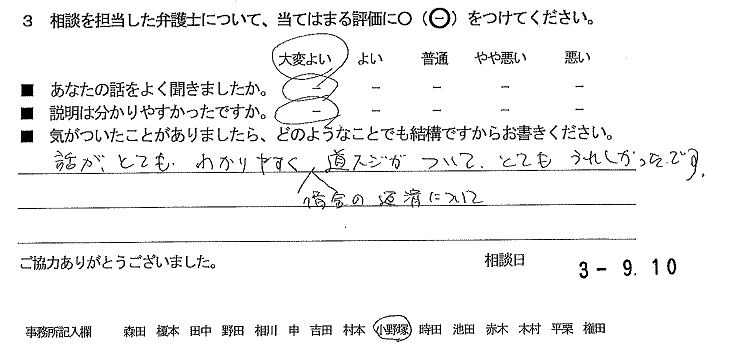 3 相談を担当した弁護士について、当てはまる評価に○（⊖）をつけてください。
大変よい よい 普通 やや悪い 悪い
■ あなたの話をよく聞きましたか。 － － － － －
■ 説明は分かりやすかったですか。 － － － － －
■ 気がついたことがありましたら、どのようなことでも結構ですからお書きください。
話が、とても、わかりやすく、道スジがついて、とてもうれしかったです。
借金の返済について
ご協力ありがとうございました。 相談日 3-9.10
事務所記入欄 森田 榎本 田中 野田 相川 申 吉田 村本 小野塚 時田 池田 赤木 木村 平栗 権田